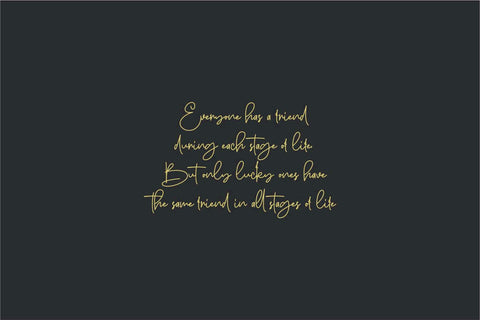 Everyone has a friend
during each stage of life
But only lucky ones have
the same friend in all stages of life